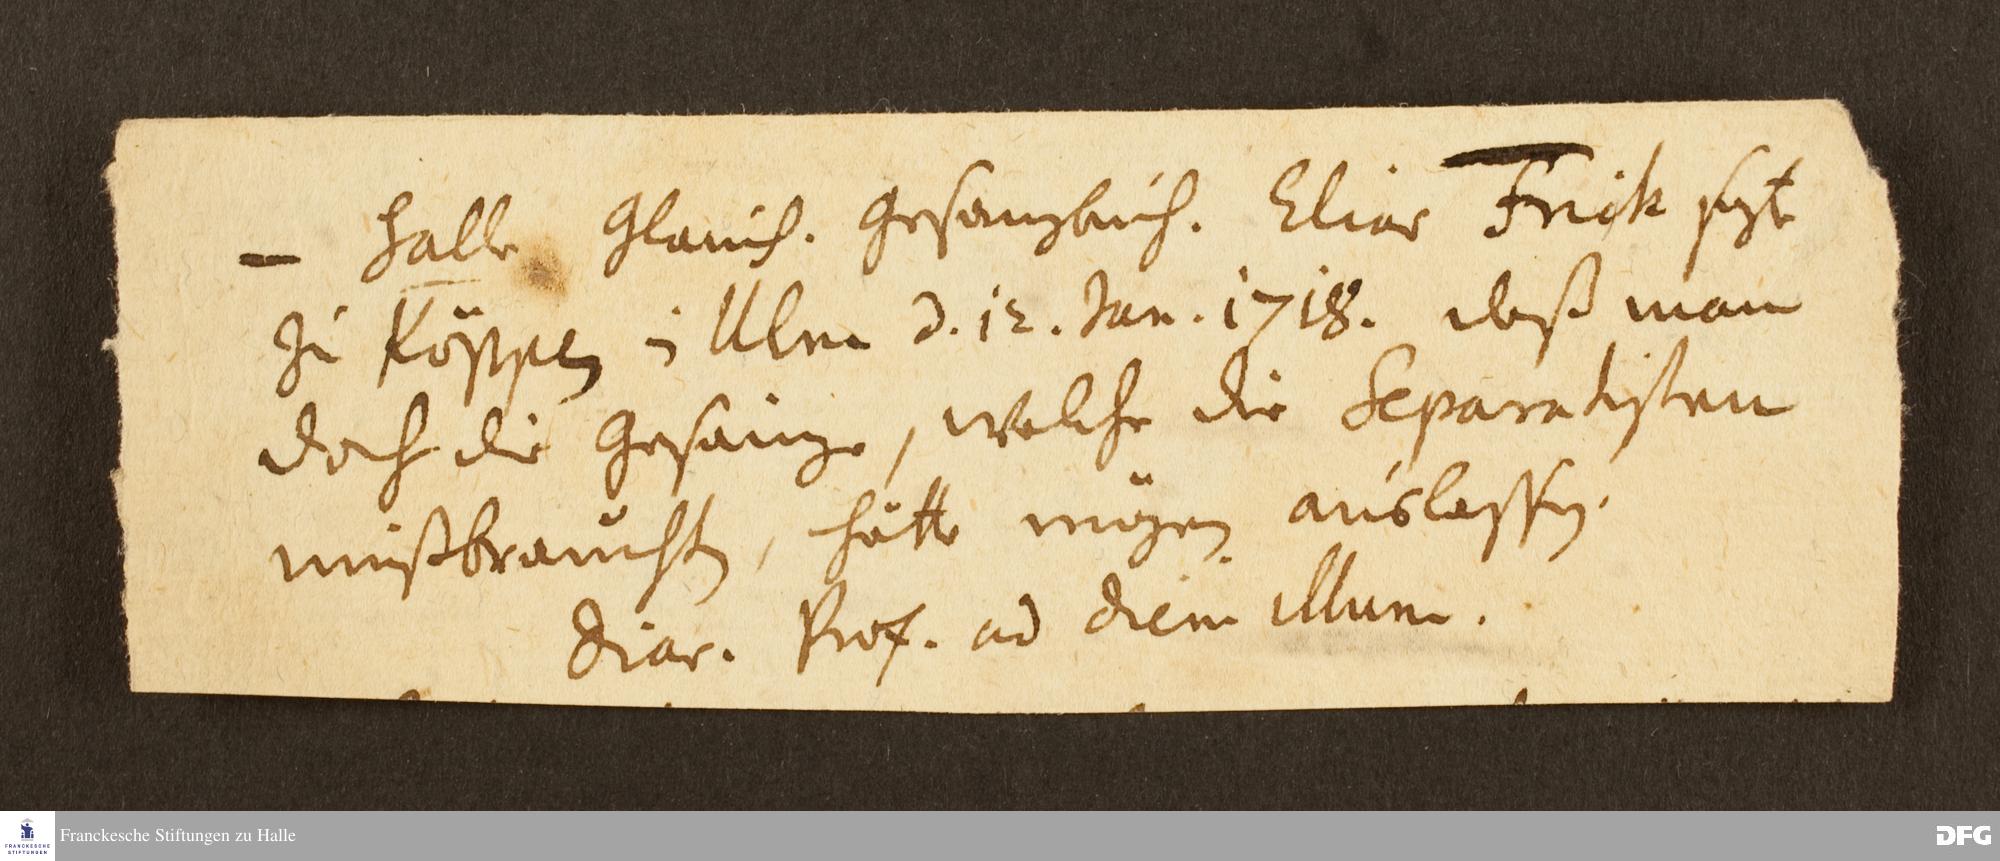 – Halle Glauch. Gesangbuch. Elias Frick sagt
zu Köppen in Ulm d. 12. Jan. 1718. daß man
doch die Gesänge, welche die Separatisten
mißbrauchten, hätte mögen auslassen.
Diar. Prof. ad diem illum.
FRANCKESCHE
STIFTUNGEN
Franckesche Stiftungen zu Halle
DFG